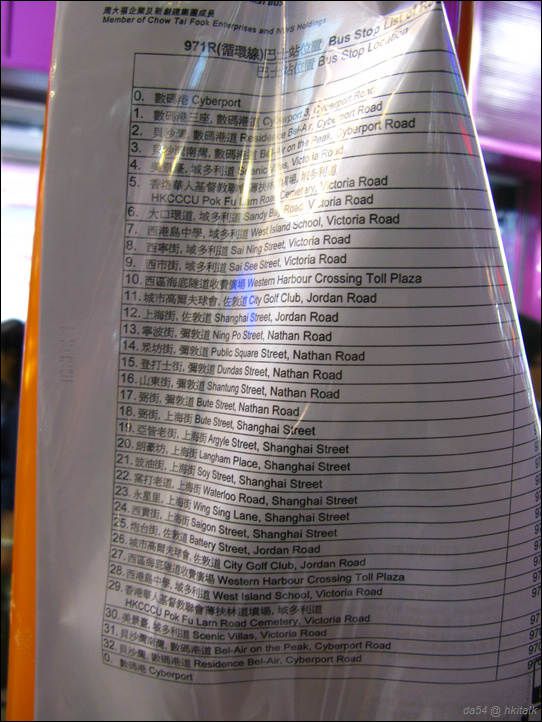 周大福企業及新創建集團成員
Member of Chow Tai Fook Enterprises and NWS Holdings
971R(循環線)巴士站位置 Bus Stop List of
巴士站位置 Bus Stop Location
0. 數碼港 Cyberport
1. 數碼港三座, 數碼港道 Cyberport 3, Cyberport Road
2. 貝沙灣, 數碼港道 Residence Bel-Air, Cyberport Road
3. 貝沙灣南灣, 數碼港道 Bel-Air on the Peak, Cyberport Road
4. 美景臺, 域多利道 Scenic Villas, Victoria Road
5. 香港華人基督教聯會薄扶林道墳場, 域多利道
HKCCCU Pok Fu Lam Road Cemetery, Victoria Road
6. 大口環道, 域多利道 Sandy Bay Road, Victoria Road
7. 西港島中學, 域多利道 West Island School, Victoria Road
8. 西寧街, 域多利道 Sai Ning Street, Victoria Road
9. 西市街, 域多利道 Sai See Street, Victoria Road
10. 西區海底隧道收費廣場 Western Harbour Crossing Toll Plaza
11. 城市高爾夫球會, 佐敦道 City Golf Club, Jordan Road
12. 上海街, 佐敦道 Shanghai Street, Jordan Road
13. 寧波街, 彌敦道 Ning Po Street, Nathan Road
14. 眾坊街, 彌敦道 Public Square Street, Nathan Road
15. 登打士街, 彌敦道 Dundas Street, Nathan Road
16. 山東街, 彌敦道 Shantung Street, Nathan Road
17. 弼街, 彌敦道 Bute Street, Nathan Road
18. 弼街, 上海街 Bute Street, Shanghai Street
19. 亞皆老街, 上海街 Argyle Street, Shanghai Street
20. 朗豪坊, 上海街 Langham Place, Shanghai Street
21. 豉油街, 上海街 Soy Street, Shanghai Street
22. 窩打老道, 上海街 Waterloo Road, Shanghai Street
23. 永星里, 上海街 Wing Sing Lane, Shanghai Street
24. 西貢街, 上海街 Saigon Street, Shanghai Street
25. 炮台街, 佐敦道 Battery Street, Jordan Road
26. 城市高爾夫球會, 佐敦道 City Golf Club, Jordan Road
27. 西區海底隧道收費廣場 Western Harbour Crossing Toll Plaza
28. 西港島中學, 域多利道 West Island School, Victoria Road
29. 香港華人基督教聯會薄扶林道墳場, 域多利道
HKCCCU Pok Fu Lam Road Cemetery, Victoria Road
30. 美景臺, 域多利道 Scenic Villas, Victoria Road
31. 貝沙灣南灣, 數碼港道 Bel-Air on the Peak, Cyberport Road
32. 貝沙灣, 數碼港道 Residence Bel-Air, Cyberport Road
0. 數碼港 Cyberport
da54 @ hkitalk